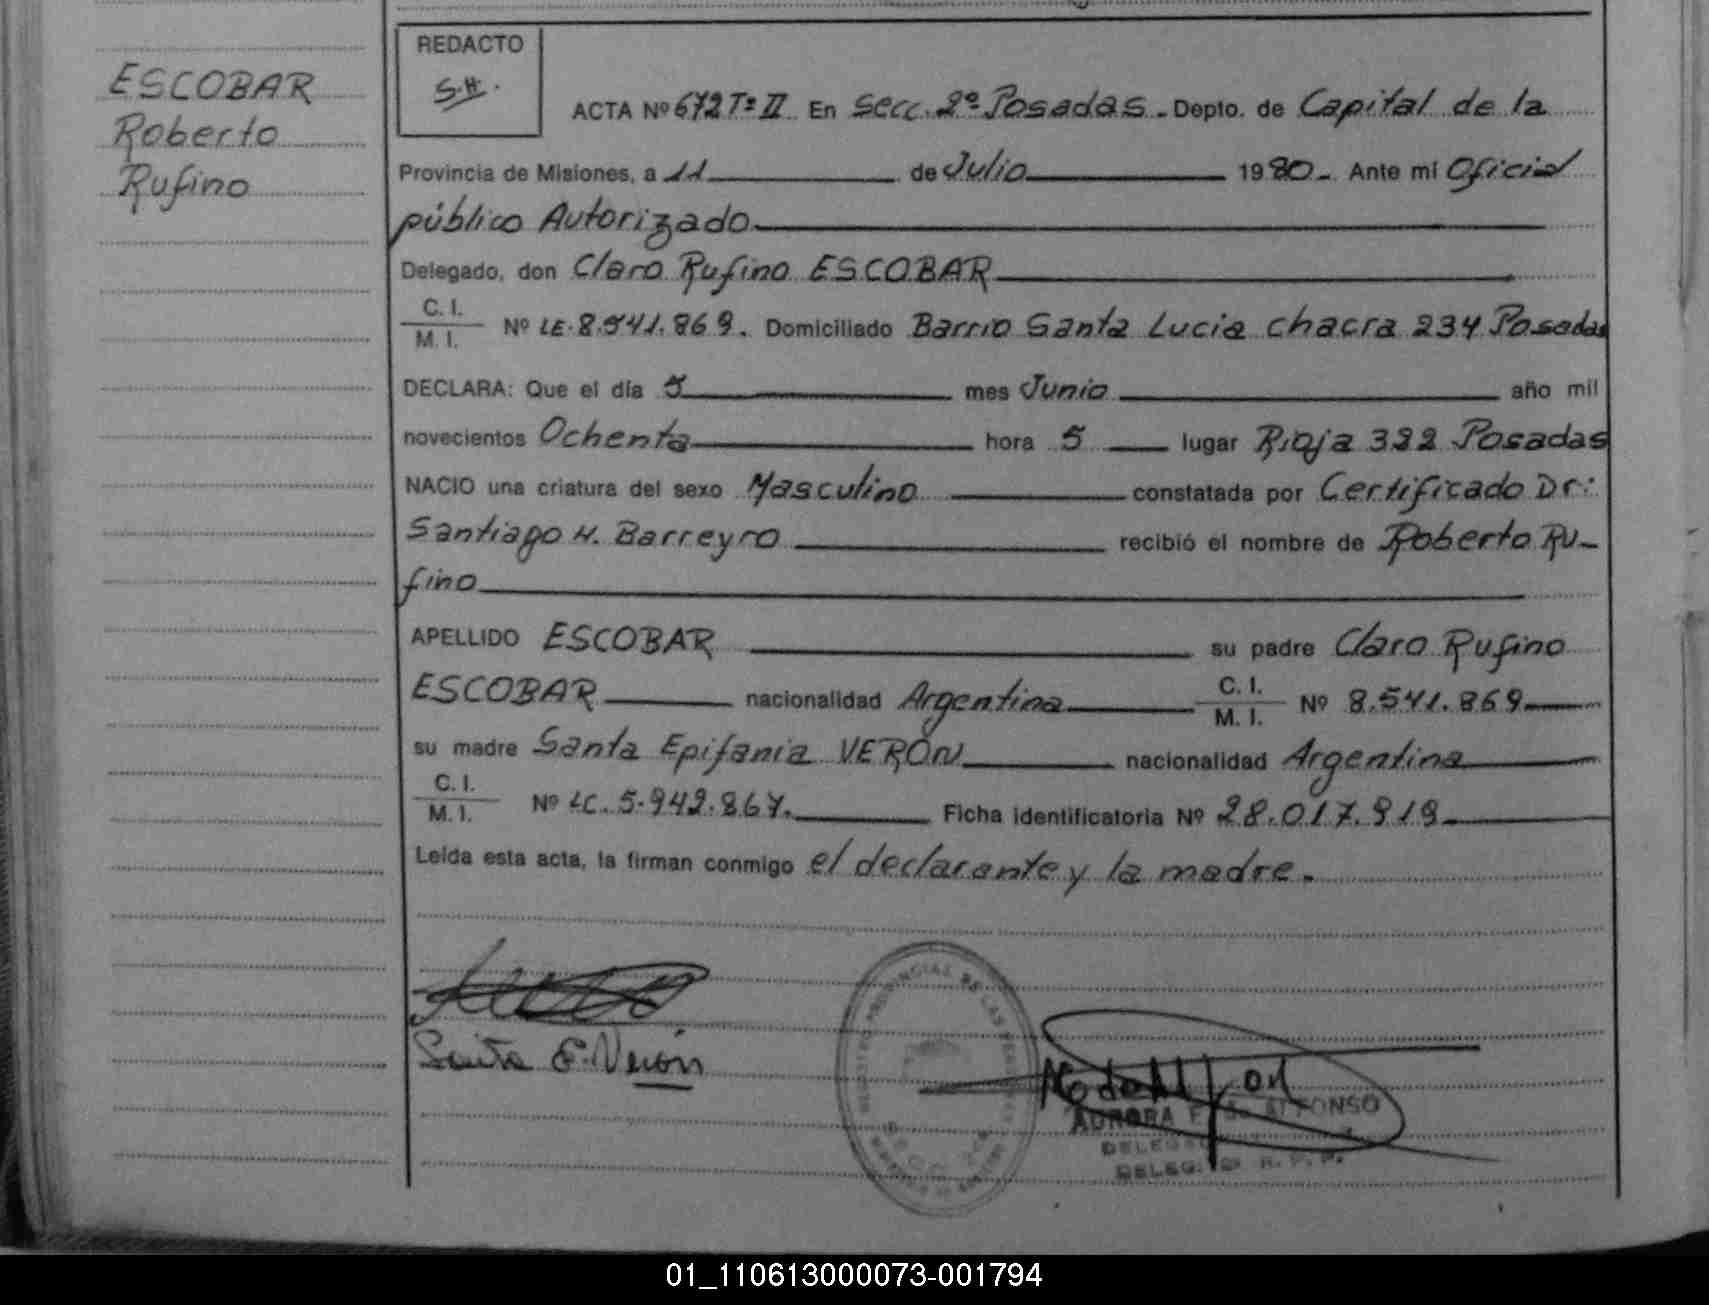 ESCOBAR
Roberto
Rufino
REDACTO
S.H.
ACTA Nº 672 Tº II En Secc. 2º Posadas - Depto. de Capital de la
Provincia de Misiones, a 11 de Julio 1980 - Ante mi Oficial
público Autorizado
Delegado, don Claro Rufino ESCOBAR
C. I.
M. I. Nº LE. 8.541.869. Domiciliado Barrio Santa Lucia chacra 234 Posadas
DECLARA: Que el día 5 mes Junio año mil
novecientos Ochenta hora 5 lugar Rioja 322 Posadas
NACIO una criatura del sexo Masculino constatada por Certificado Dr:
Santiago H. Barreyro recibió el nombre de Roberto Ru-
fino
APELLIDO ESCOBAR su padre Claro Rufino
ESCOBAR nacionalidad Argentina C. I. M. I. Nº 8.541.869
su madre Santa Epifania VERÓN nacionalidad Argentina
C. I.
M. I. Nº LC. 5.942.867. Ficha identificatoria Nº 28.017.919
Leída esta acta, la firman conmigo el declarante y la madre.
Santa E. Verón
AURORA ALFONSO
01_110613000073-001794